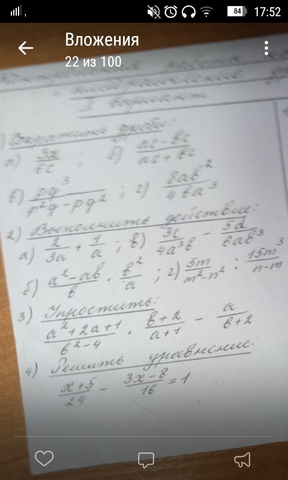 84 17:52
Вложения
22 из 100
I вариант
1) Сократить дроби:
а) 3x/6c ; б) (ac-bc)/(ac+bc)
в) pg³/(p²g-pg²) ; г) 8ab²/4ba³
2) Выполнить действие:
а) 2/3a + 1/a ; в) 3c/4a³b - 5d/6ab³
б) (a²-ab)/b · b²/a ; г) 5m/(m²-n²) : 15m³/(n-m)
3) Упростить:
(a²+2a+1)/(b²-4) · (b+2)/(a+1) - a/(b+2)
4) Решить уравнение:
(x+5)/24 - (3x-8)/16 = 1